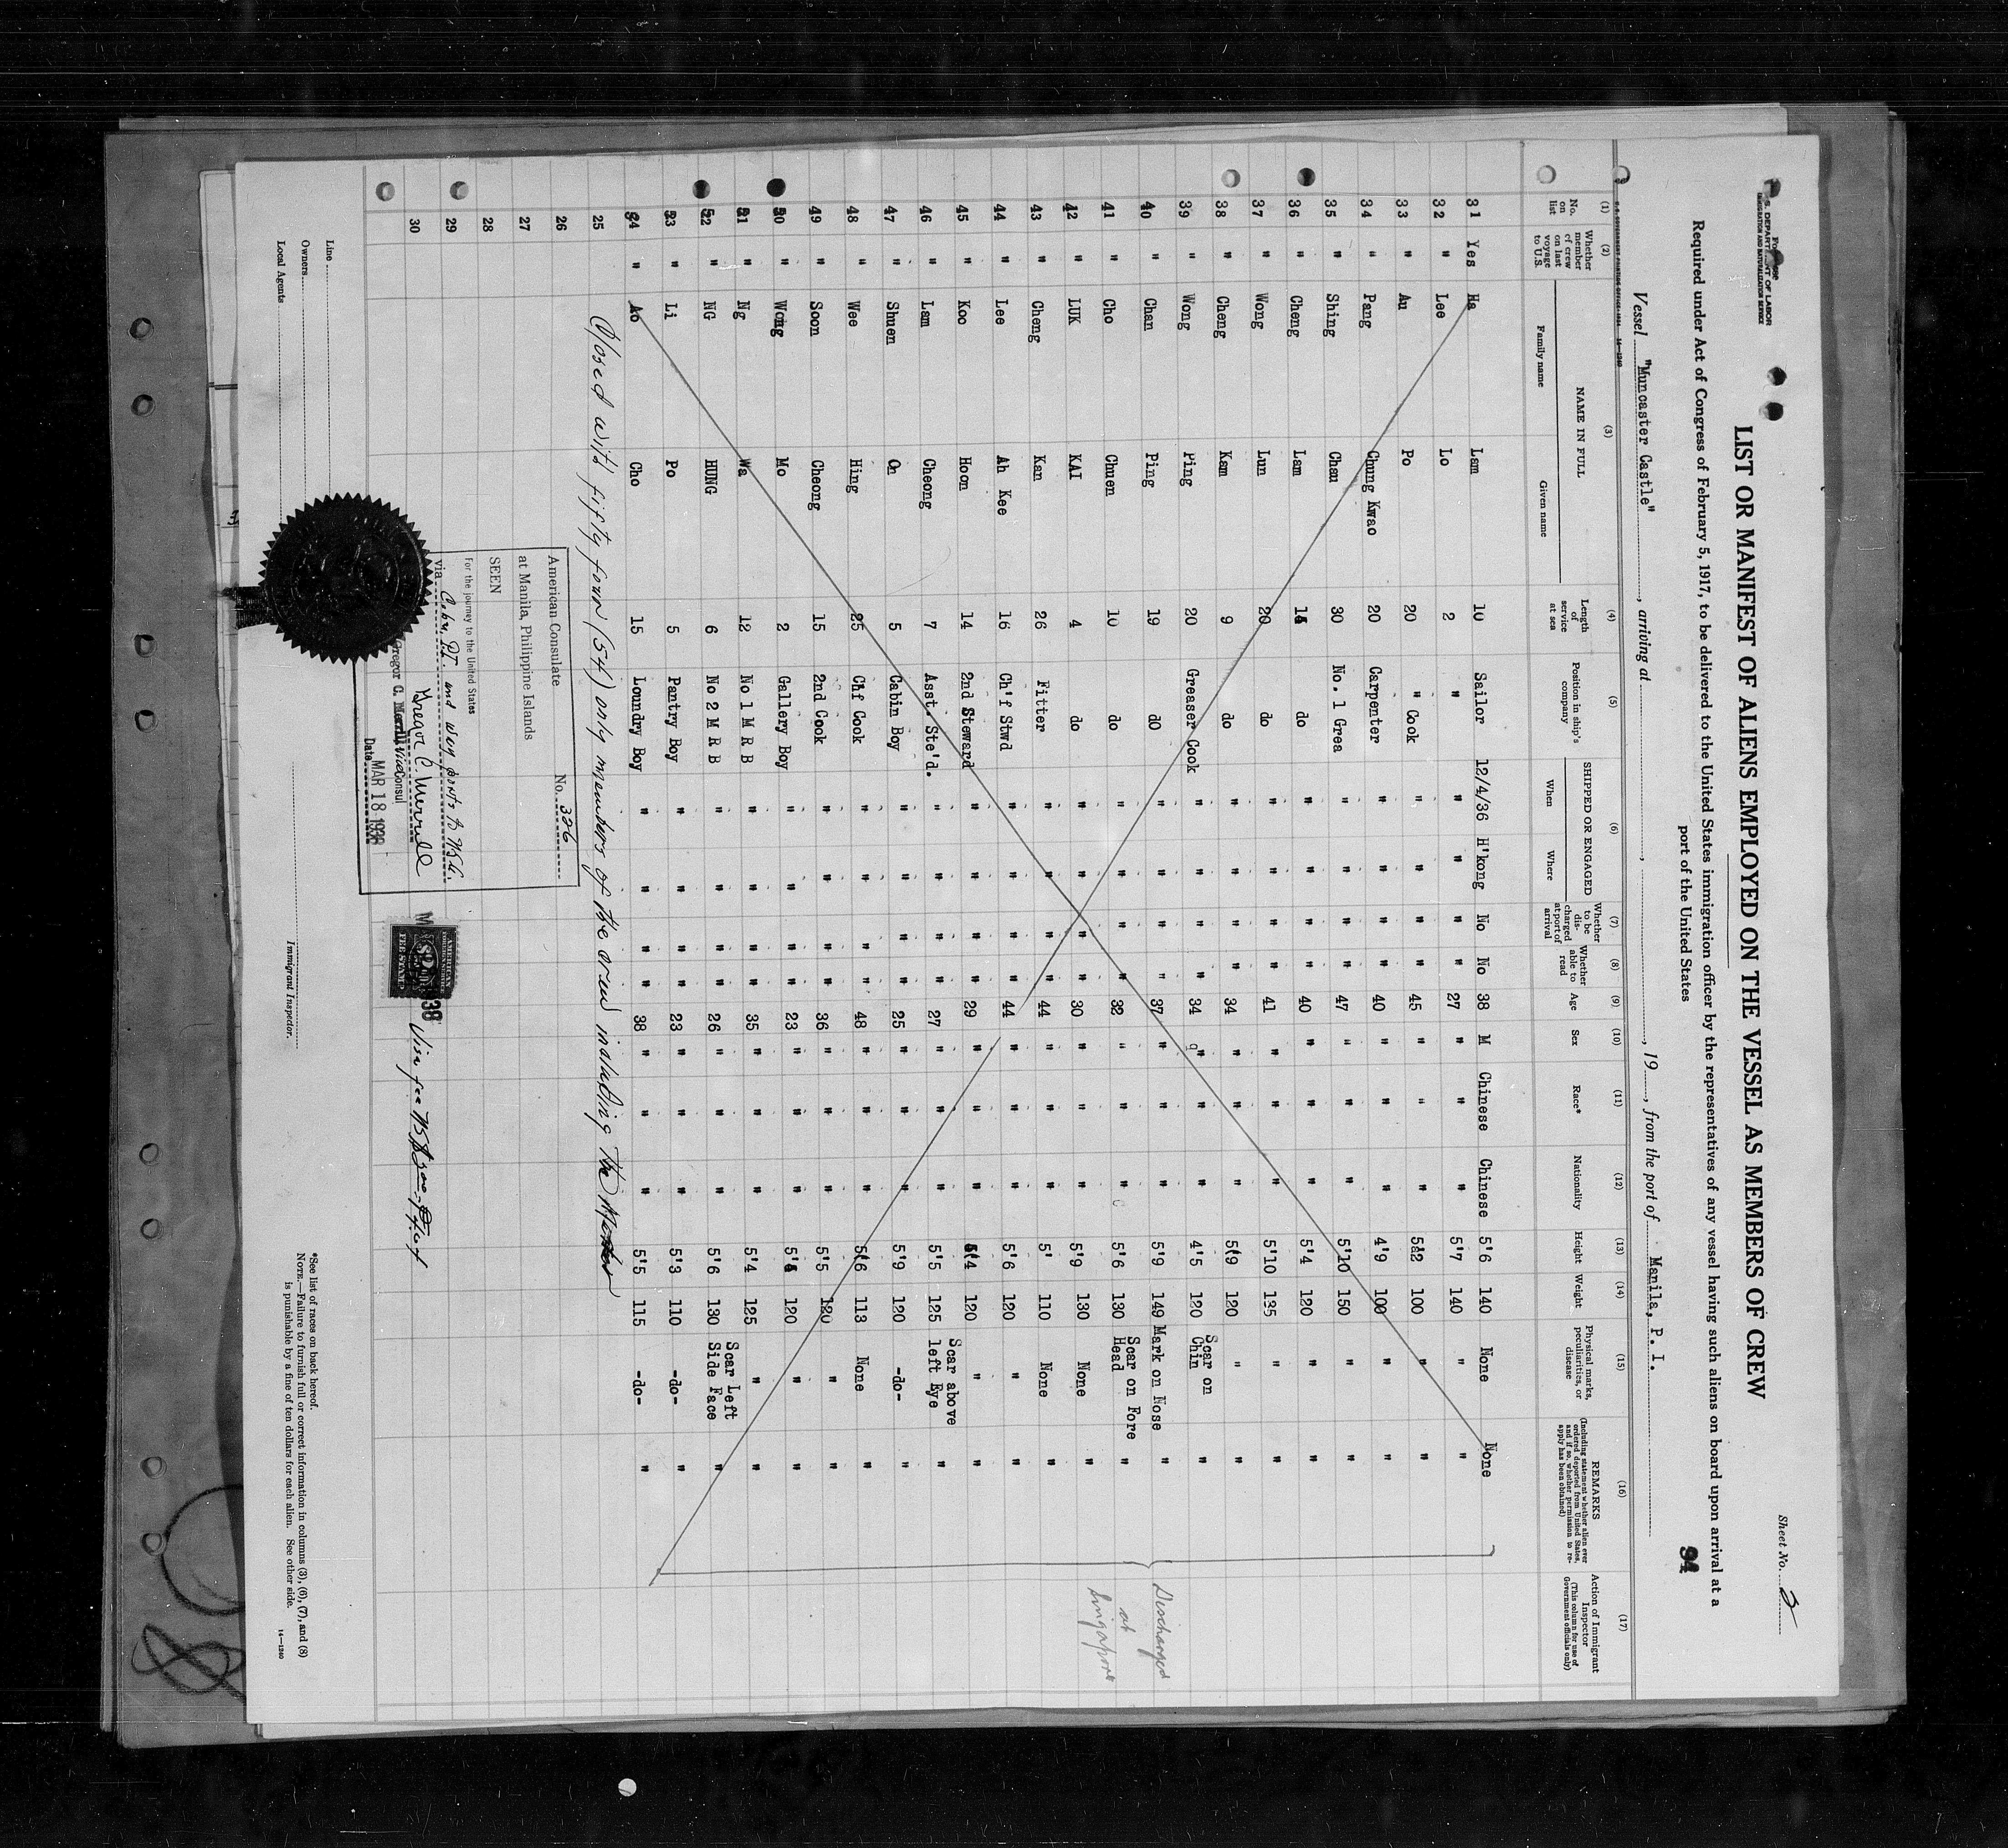 Sheet No. 2
U. S. DEPARTMENT OF LABOR
IMMIGRATION AND NATURALIZATION SERVICE
LIST OR MANIFEST OF ALIENS EMPLOYED ON THE VESSEL AS MEMBERS OF CREW
Required under Act of Congress of February 5, 1917, to be delivered to the United States immigration officer by the representatives of any vessel having such aliens on board upon arrival at a
port of the United States
Vessel "Muncaster Castle", arriving at , 19 , from the port of Manila, P. I.
(1) (2) (3) (4) (5) (6) (7) (8) (9) (10) (11) (12) (13) (14) (15) (16) (17)
No. on list
Whether member of crew on last voyage to U.S.
NAME IN FULL
Family name Given name
Length of service at sea
Position in ship's company
SHIPPED OR ENGAGED
When Where
Whether to be discharged at port of arrival
Whether able to read
Age
Sex
Race*
Nationality
Height
Weight
Physical marks, peculiarities, or disease
REMARKS
(Including statement whether alien ever ordered deported from United States, and if so, whether permission to reapply has been obtained)
Action of Immigrant Inspector
(This column for use of Government officials only)
31 Yes Ha Lam 10 Sailor 12/4/36 H'kong No No 38 M Chinese Chinese 5'6 140 None None
32 " Lee Lo 2 " " " " " 27 " " " 5'7 140 " "
33 " Au Po 20 " Cook " " " " 45 " " " 100 " "
34 " Pang Chung Kwao 20 Carpenter " " " " 40 " " " 4'9 100 " "
35 " Shing Chau 30 No. 1 Grea " " " " 47 " " " 5'10 150 " "
36 " Cheng Lam do " " " " 40 " " " 5'4 120 " "
37 " Wong Lun 20 do " " " " 41 " " " 5'10 135 " "
38 " Cheng Kam 9 do " " " " 34 " " " 5'9 120 " "
39 " Wong Ping 20 Greaser Cook " " " " 34 " " " 4'5 120 Scar on Chin "
40 " Chan Ping 19 dO " " " " 37 " " " 5'9 149 Mark on Nose "
41 " Cho Chuen 10 do " " " " 32 " " " 5'6 130 Scar on Fore Head "
42 " LUK KAI 4 do " " " " 30 " " " 5'9 130 None "
43 " Cheng Kan 26 Fitter " " " " 44 " " " 5' 110 None "
44 " Lee Ah Kee 16 Ch'f Stwd " " " " 44 " " " 5'6 120 " "
45 " Koo Hoon 14 2nd Steward " " " " 29 " " " 5'4 120 " "
46 " Lam Cheong 7 Asst. Ste'd. " " " " 27 " " " 5'5 125 Scar above left Eye "
47 " Shuen On 5 Cabin Boy " " " " 25 " " " 5'9 120 -do- "
48 " Wee Hing 25 Chf Cook " " " " 48 " " " 5'6 113 None "
49 " Soon Cheong 15 2nd Cook " " " " 36 " " " 5'5 120 " "
50 " Wong Mo 2 Gallery Boy " " " " 23 " " " 120 " "
51 " Ng Wa 12 No 1 M R B " " " " 35 " " " 5'4 125 " "
52 " NG HUNG 6 No 2 M R B " " " " 26 " " " 5'6 130 Scar Left Side Face "
53 " Li Po 5 Pantry Boy " " " " 23 " " " 5'3 110 -do- "
54 " Ao Cho 15 Loundry Boy " " " " 38 " " " 5'5 115 -do- "
Discharged
at
Singapore
25
Closed with fifty four (54) only members of the crew including the Master
26
27
28
29
30
American Consulate No. 326
at Manila, Philippine Islands
SEEN
For the journey to the United States
via Cebu, P.I. and way ports to USA.
Gregor C. Merrill
Gregor C. Merrill Vice Consul
Date MAR 18 1938
AMERICAN
FOREIGN SERVICE
FEE STAMP
Line
Owners
Local Agents
Immigrant Inspector.
*See list of races on back hereof.
NOTE.—Failure to furnish full or correct information in columns (3), (6), (7), and (8)
is punishable by a fine of ten dollars for each alien. See other side.
14—1240